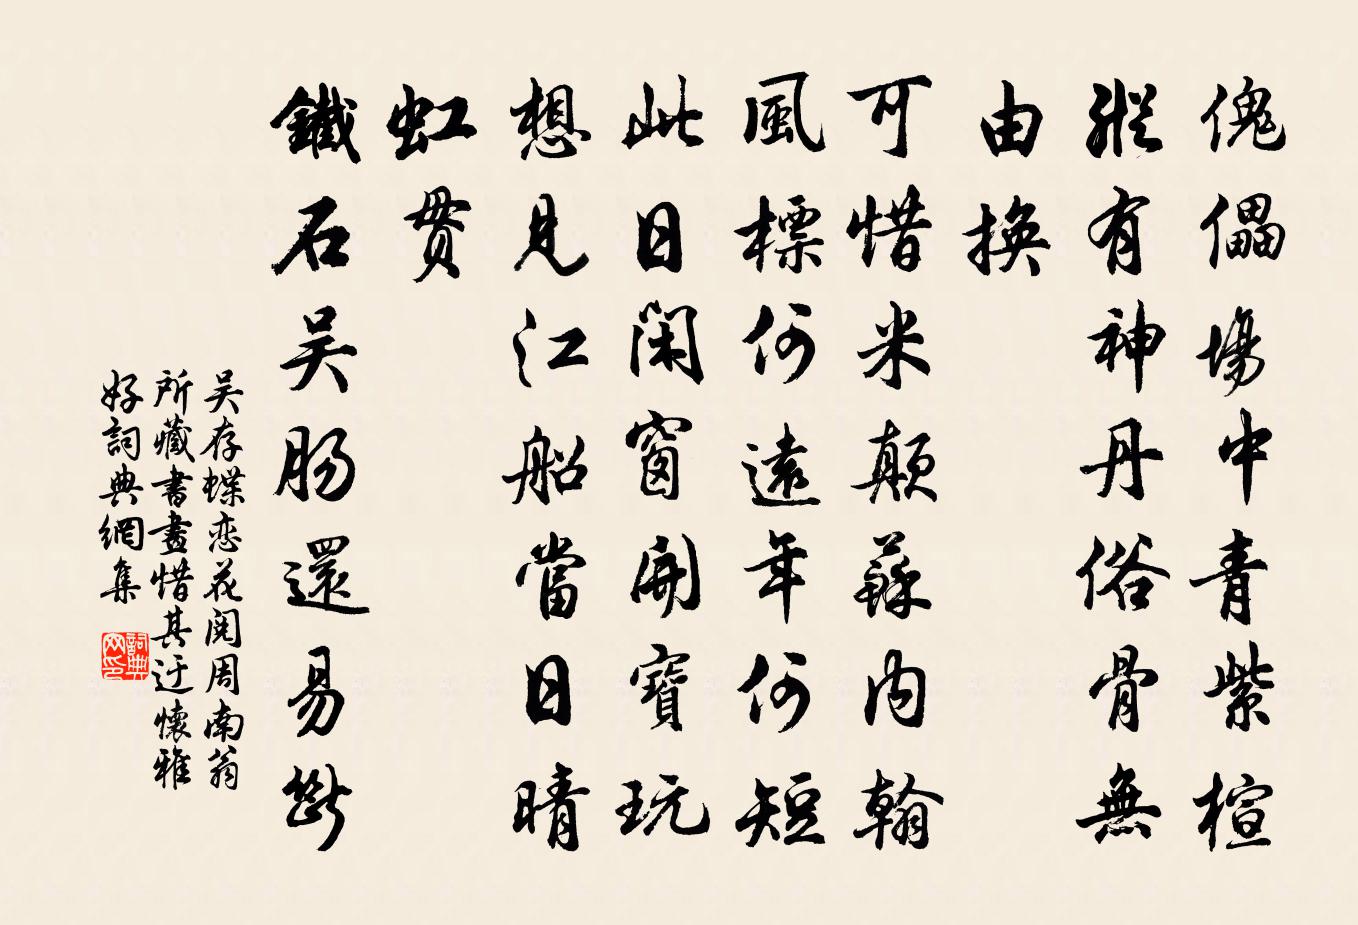 傀儡場中青紫楦
縱有神丹俗骨無
由換
可惜米顛蘇内翰
風標何遠年何短
此日閑窗開寶玩
想見江船當日晴
虹貫
鐵石吴肠還易斷
吴存蝶恋花閱周南翁
所藏書畫惜其迂懷雅
好詞典網集
詞典
网印